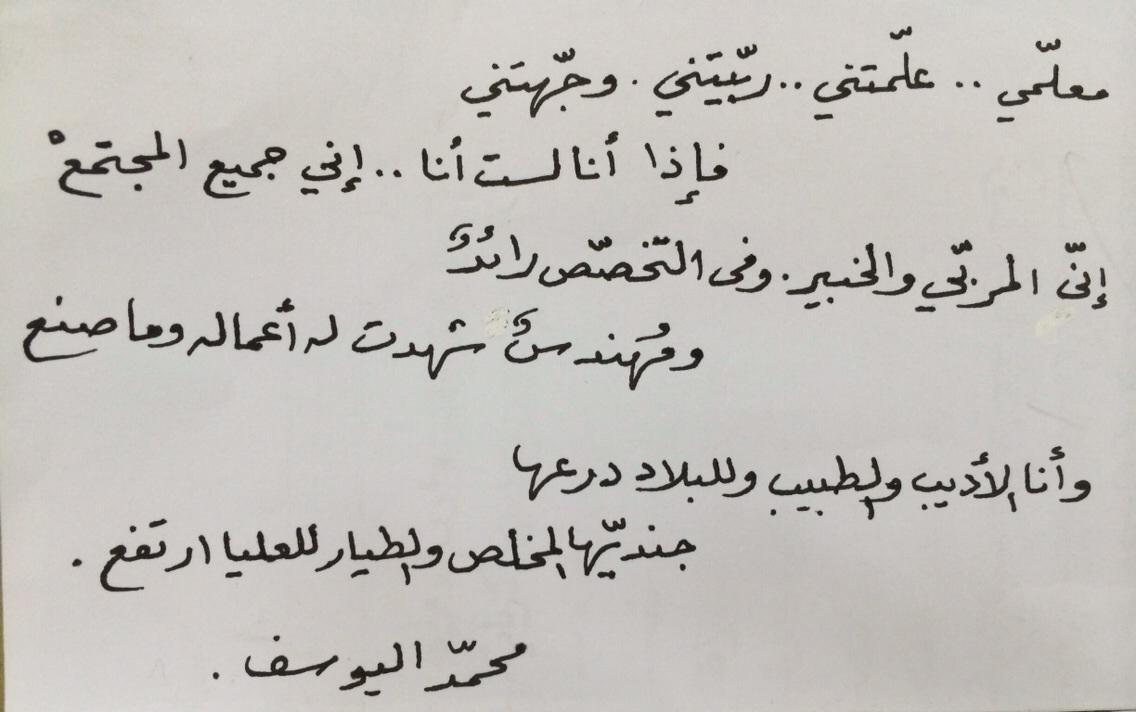 معلّمي .. علّمتني .. ربّيتني . وجّهتني
فإذا أنا لست أنا .. إني جميع المجتمعْ
إنّي المربّي والخبير . وفي التّخصّص رائدٌ
ومُهندسٌ شهدت له أعماله وما صنع
وأنا الأديب والطبيب وللبلاد درعها
جنديّها المخلص والطيار للعليا ارتفع .
محمّد اليوسف .